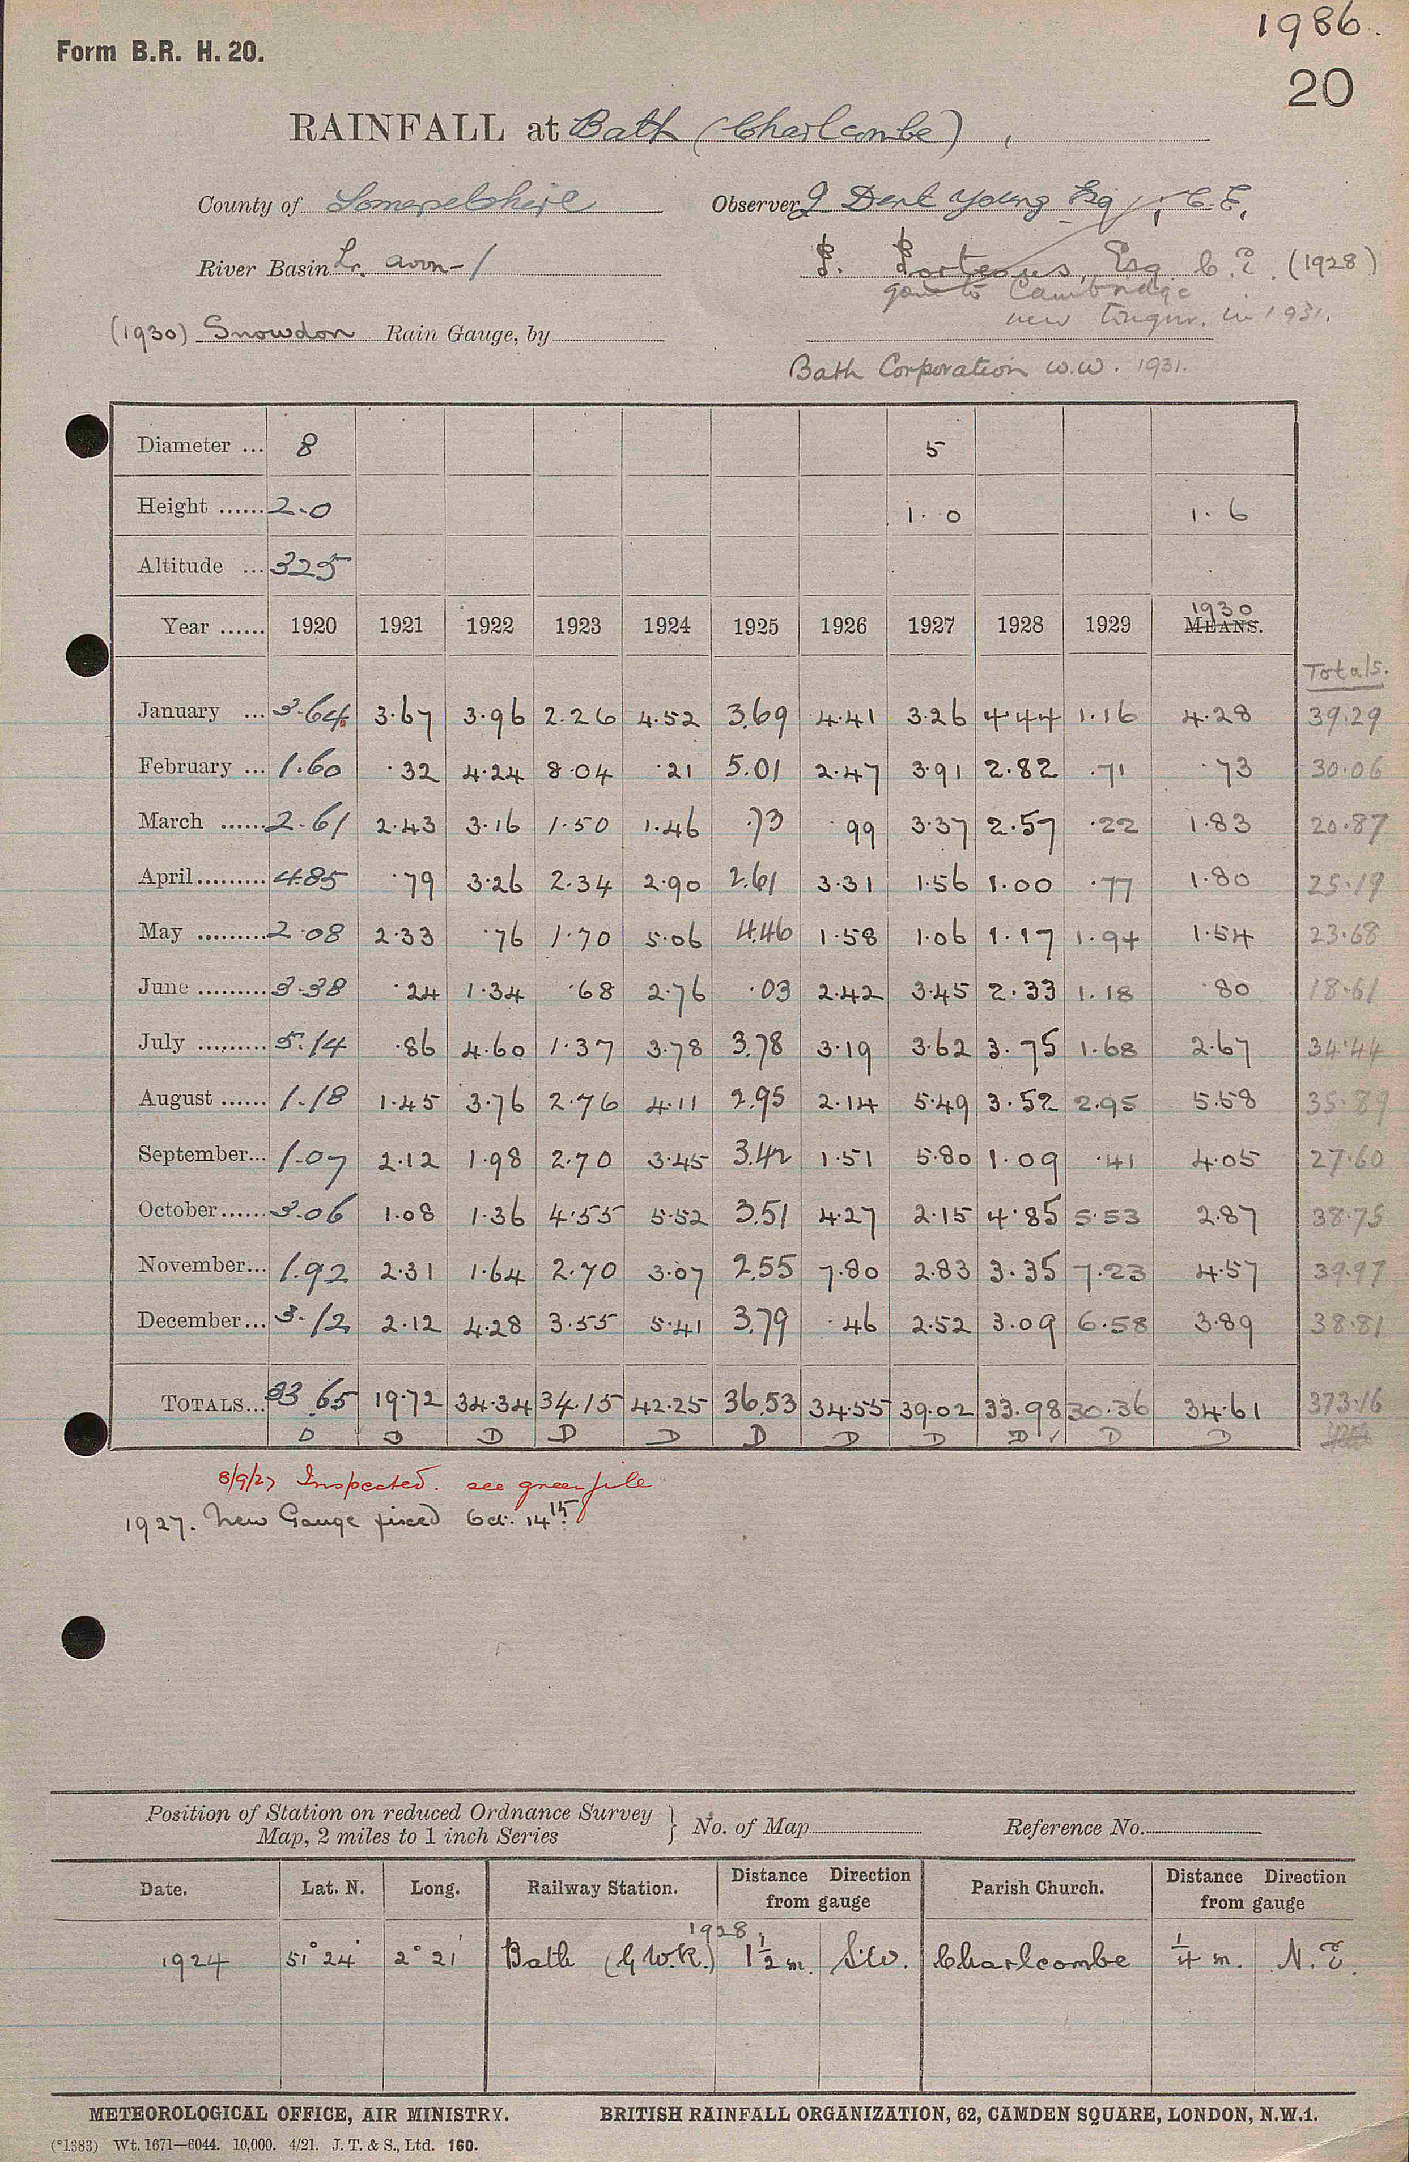 1986.
Form B.R. H. 20.
20
RAINFALL at Bath (Charlcombe),
County of Somersetshire Observer J Dent Young Esq, C.E,
River Basin Lr. Avon-1 P. Porteous, Esq C.E. (1928)
gone to Cambridge
new Engnr. in 1931.
(1930) Snowdon Rain Gauge, by
Bath Corporation W.W. 1931.
Diameter ... 8 5
Height ...... 2.0 1.0 1.6
Altitude ... 325
1930
Year ...... 1920 1921 1922 1923 1924 1925 1926 1927 1928 1929 MEANS.
Totals.
January ... 3.64 3.67 3.96 2.26 4.52 3.69 4.41 3.26 4.44 1.16 4.28 39.29
February ... 1.60 .32 4.24 8.04 .21 5.01 2.47 3.91 2.82 .71 .73 30.06
March ...... 2.61 2.43 3.16 1.50 1.46 .73 .99 3.37 2.57 .22 1.83 20.87
April......... 4.85 .79 3.26 2.34 2.90 2.61 3.31 1.56 1.00 .77 1.80 25.19
May ......... 2.08 2.33 .76 1.70 5.06 4.46 1.58 1.06 1.17 1.94 1.54 23.68
June ......... 3.38 .24 1.34 .68 2.76 .03 2.42 3.45 2.33 1.18 .80 18.61
July ......... 5.14 .86 4.60 1.37 3.78 3.78 3.19 3.62 3.75 1.68 2.67 34.44
August ...... 1.18 1.45 3.76 2.76 4.11 2.95 2.14 5.49 3.52 2.95 5.58 35.89
September... 1.07 2.12 1.98 2.70 3.45 3.42 1.51 5.80 1.09 .41 4.05 27.60
October...... 3.06 1.08 1.36 4.55 5.52 3.51 4.27 2.15 4.85 5.53 2.87 38.75
November... 1.92 2.31 1.64 2.70 3.07 2.55 7.80 2.83 3.35 7.23 4.57 39.97
December... 3.12 2.12 4.28 3.55 5.41 3.79 .46 2.52 3.09 6.58 3.89 38.81
TOTALS... 33.65 19.72 34.34 34.15 42.25 36.53 34.55 39.02 33.98 30.36 34.61 373.16
D D D D D D D D D ✓ D D
8/9/27 Inspected. see green file
1927. New Gauge fixed Oct. 14th.
Position of Station on reduced Ordnance Survey
Map, 2 miles to 1 inch Series } No. of Map Reference No.
Date. Lat. N. Long. Railway Station. Distance Direction from gauge Parish Church. Distance Direction from gauge
1928,
1924 51° 24' 2° 21' Bath (G.W.R.) 1½ m. S.W. Charlcombe ¼ m. N.E.
METEOROLOGICAL OFFICE, AIR MINISTRY. BRITISH RAINFALL ORGANIZATION, 62, CAMDEN SQUARE, LONDON, N.W.1.
(*1383) Wt. 1671—6044. 10,000. 4/21. J. T. & S., Ltd. 160.